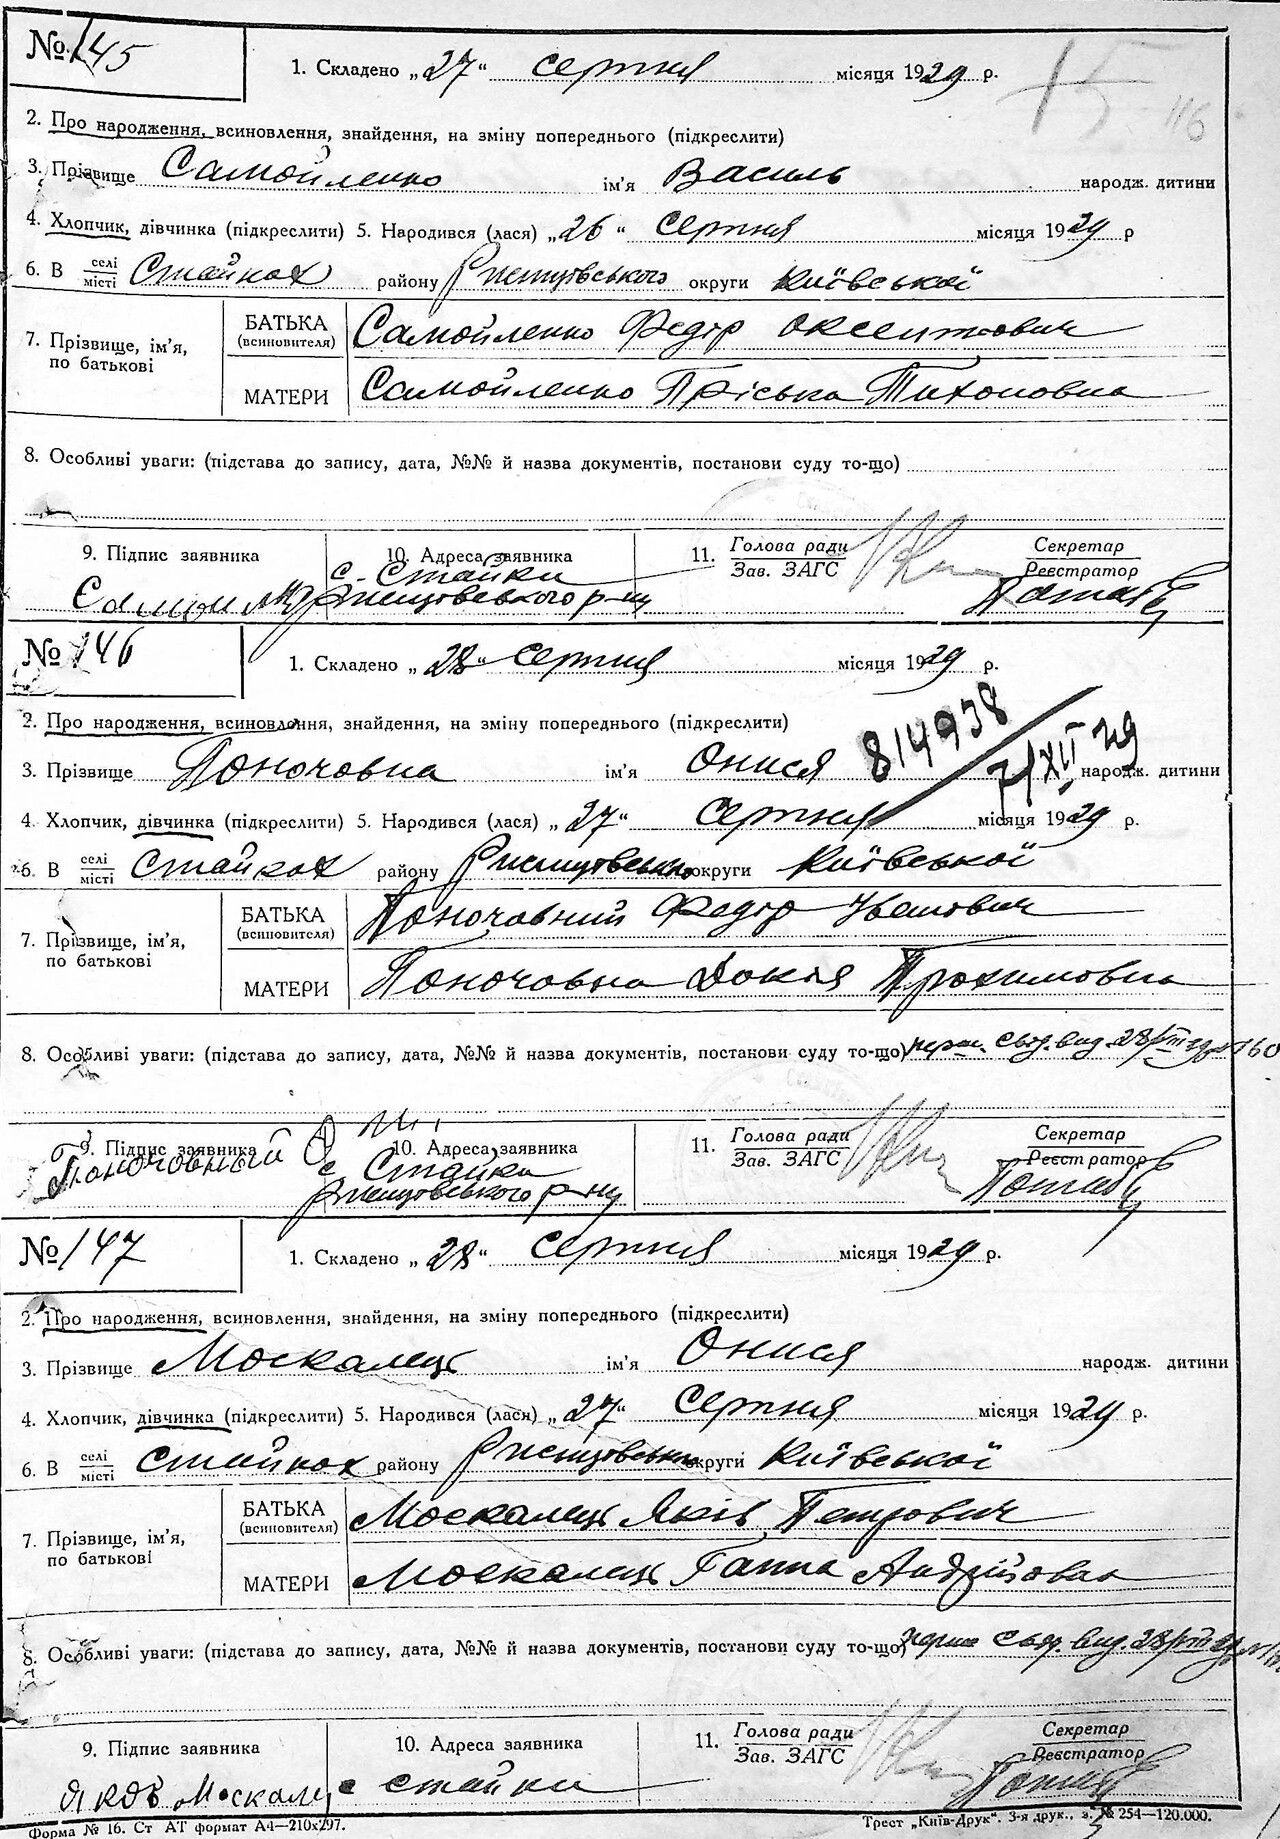 № 145
1. Складено „27“ серпня місяця 1929 р.
15
116
2. Про народження, всиновлення, знайдення, на зміну попереднього (підкреслити)
3. Прізвище Самойленко ім'я Василь народж. дитини
4. Хлопчик, дівчинка (підкреслити) 5. Народився (лася) „26“ серпня місяця 1929 р
6. В селі місті Стайках району Ржищівського округи Київської
7. Прізвище, ім'я, по батькові
БАТЬКА (всиновителя) Самойленко Федір Оксентович
МАТЕРИ Самойленко Пріська Тихоновна
8. Особливі уваги: (підстава до запису, дата, №№ й назва документів, постанови суду то-що)
9. Підпис заявника
10. Адреса заявника
с. Стайки
Ржищевського р-ну
11. Голова ради
Зав. ЗАГС
Секретар
Реєстратор
№ 146
1. Складено „28“ серпня місяця 1929 р.
2. Про народження, всиновлення, знайдення, на зміну попереднього (підкреслити)
814938
7/XII 29
3. Прізвище Поночовна ім'я Онися народж. дитини
4. Хлопчик, дівчинка (підкреслити) 5. Народився (лася) „27“ серпня місяця 1929 р.
6. В селі місті Стайках району округи Київської
7. Прізвище, ім'я, по батькові
БАТЬКА (всиновителя) Поночовний Федір Іванович
МАТЕРИ Поночовна Докія Трохимовна
8. Особливі уваги: (підстава до запису, дата, №№ й назва документів, постанови суду то-що) вид. 28/VIII 160
9. Підпис заявника
Поночовный
10. Адреса заявника
с Стайки
Ржищевського р-ну
11. Голова ради
Зав. ЗАГС
Секретар
Реєстратор
№ 147
1. Складено „28“ серпня місяця 1929 р.
2. Про народження, всиновлення, знайдення, на зміну попереднього (підкреслити)
3. Прізвище Москалець ім'я Онися народж. дитини
4. Хлопчик, дівчинка (підкреслити) 5. Народився (лася) „27“ серпня місяця 1929 р.
6. В селі місті Стайках району округи Київської
7. Прізвище, ім'я, по батькові
БАТЬКА (всиновителя) Москалець Яків Петрович
МАТЕРИ Москалець Ганна Андрійовна
8. Особливі уваги: (підстава до запису, дата, №№ й назва документів, постанови суду то-що) вид. 28/VIII
9. Підпис заявника
10. Адреса заявника
с Стайки
11. Голова ради
Зав. ЗАГС
Секретар
Реєстратор
Форма № 16. Ст АТ формат А4—210x297.
Трест „Київ-Друк“. 3-я друк., з. № 254—120.000.